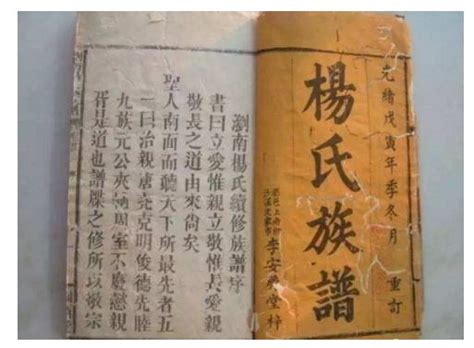 光緒戊寅年季冬月 重訂
楊氏族譜
李安榮堂梓
瀏南楊氏續修族譜序
書曰立愛惟親立敬惟長愛親
敬長之道由來尚矣
聖人南面而聽天下所最先者五
一曰治親唐堯克明俊德先睦
九族元公夾輔周室不廢懿親
胥是道也譜牒之修所以敬宗